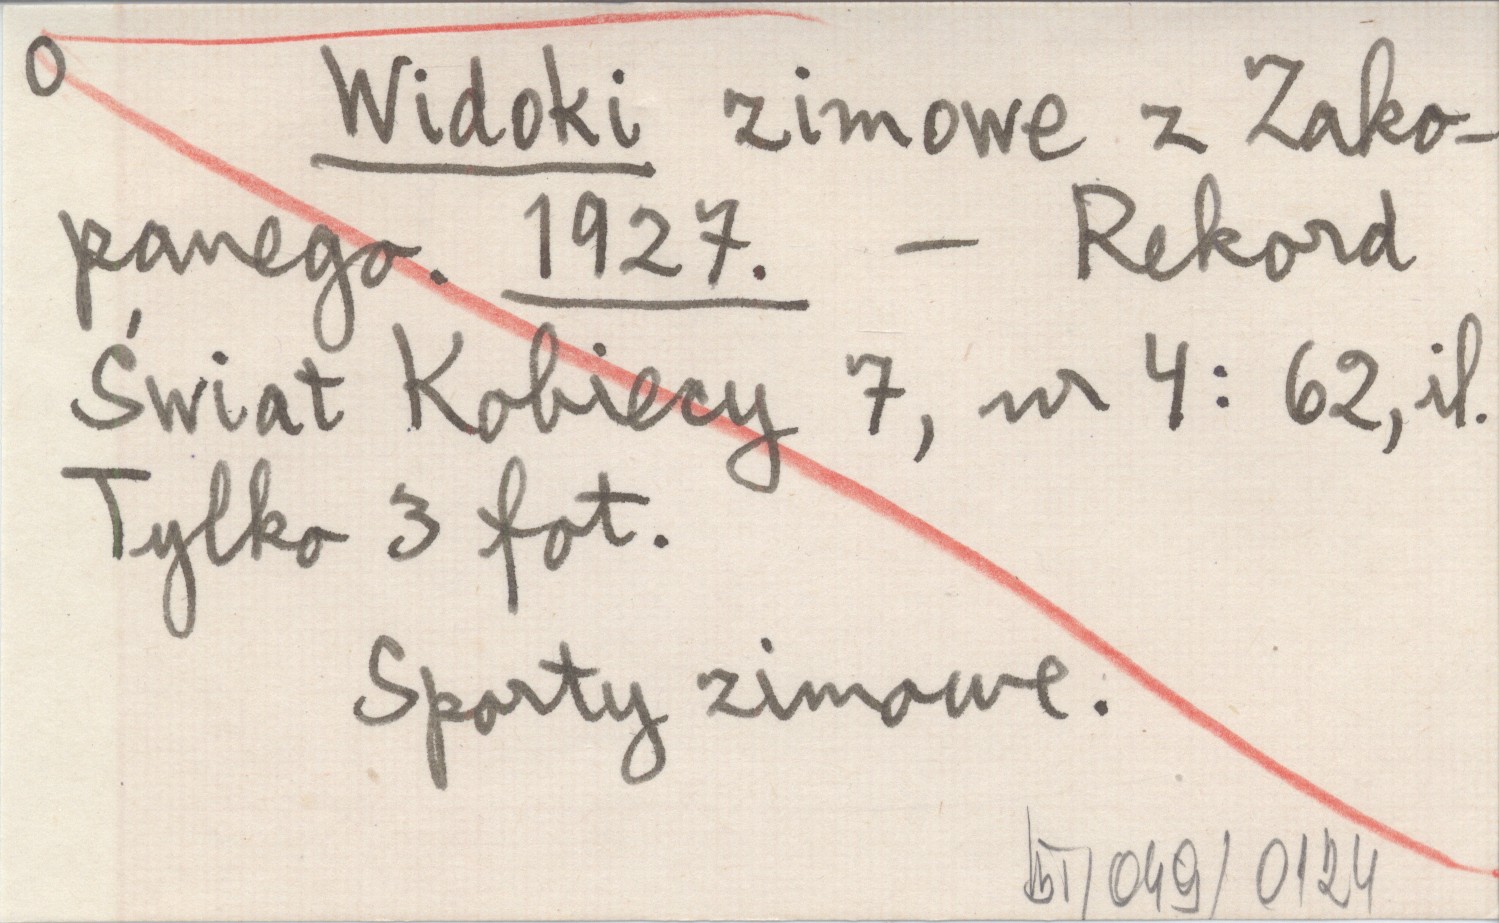 0
Widoki zimowe z Zako-
panego. 1927. — Rekord
Świat Kobiecy 7, nr 4: 62, il.
Tylko 3 fot.
Sporty zimowe.
/049/0124